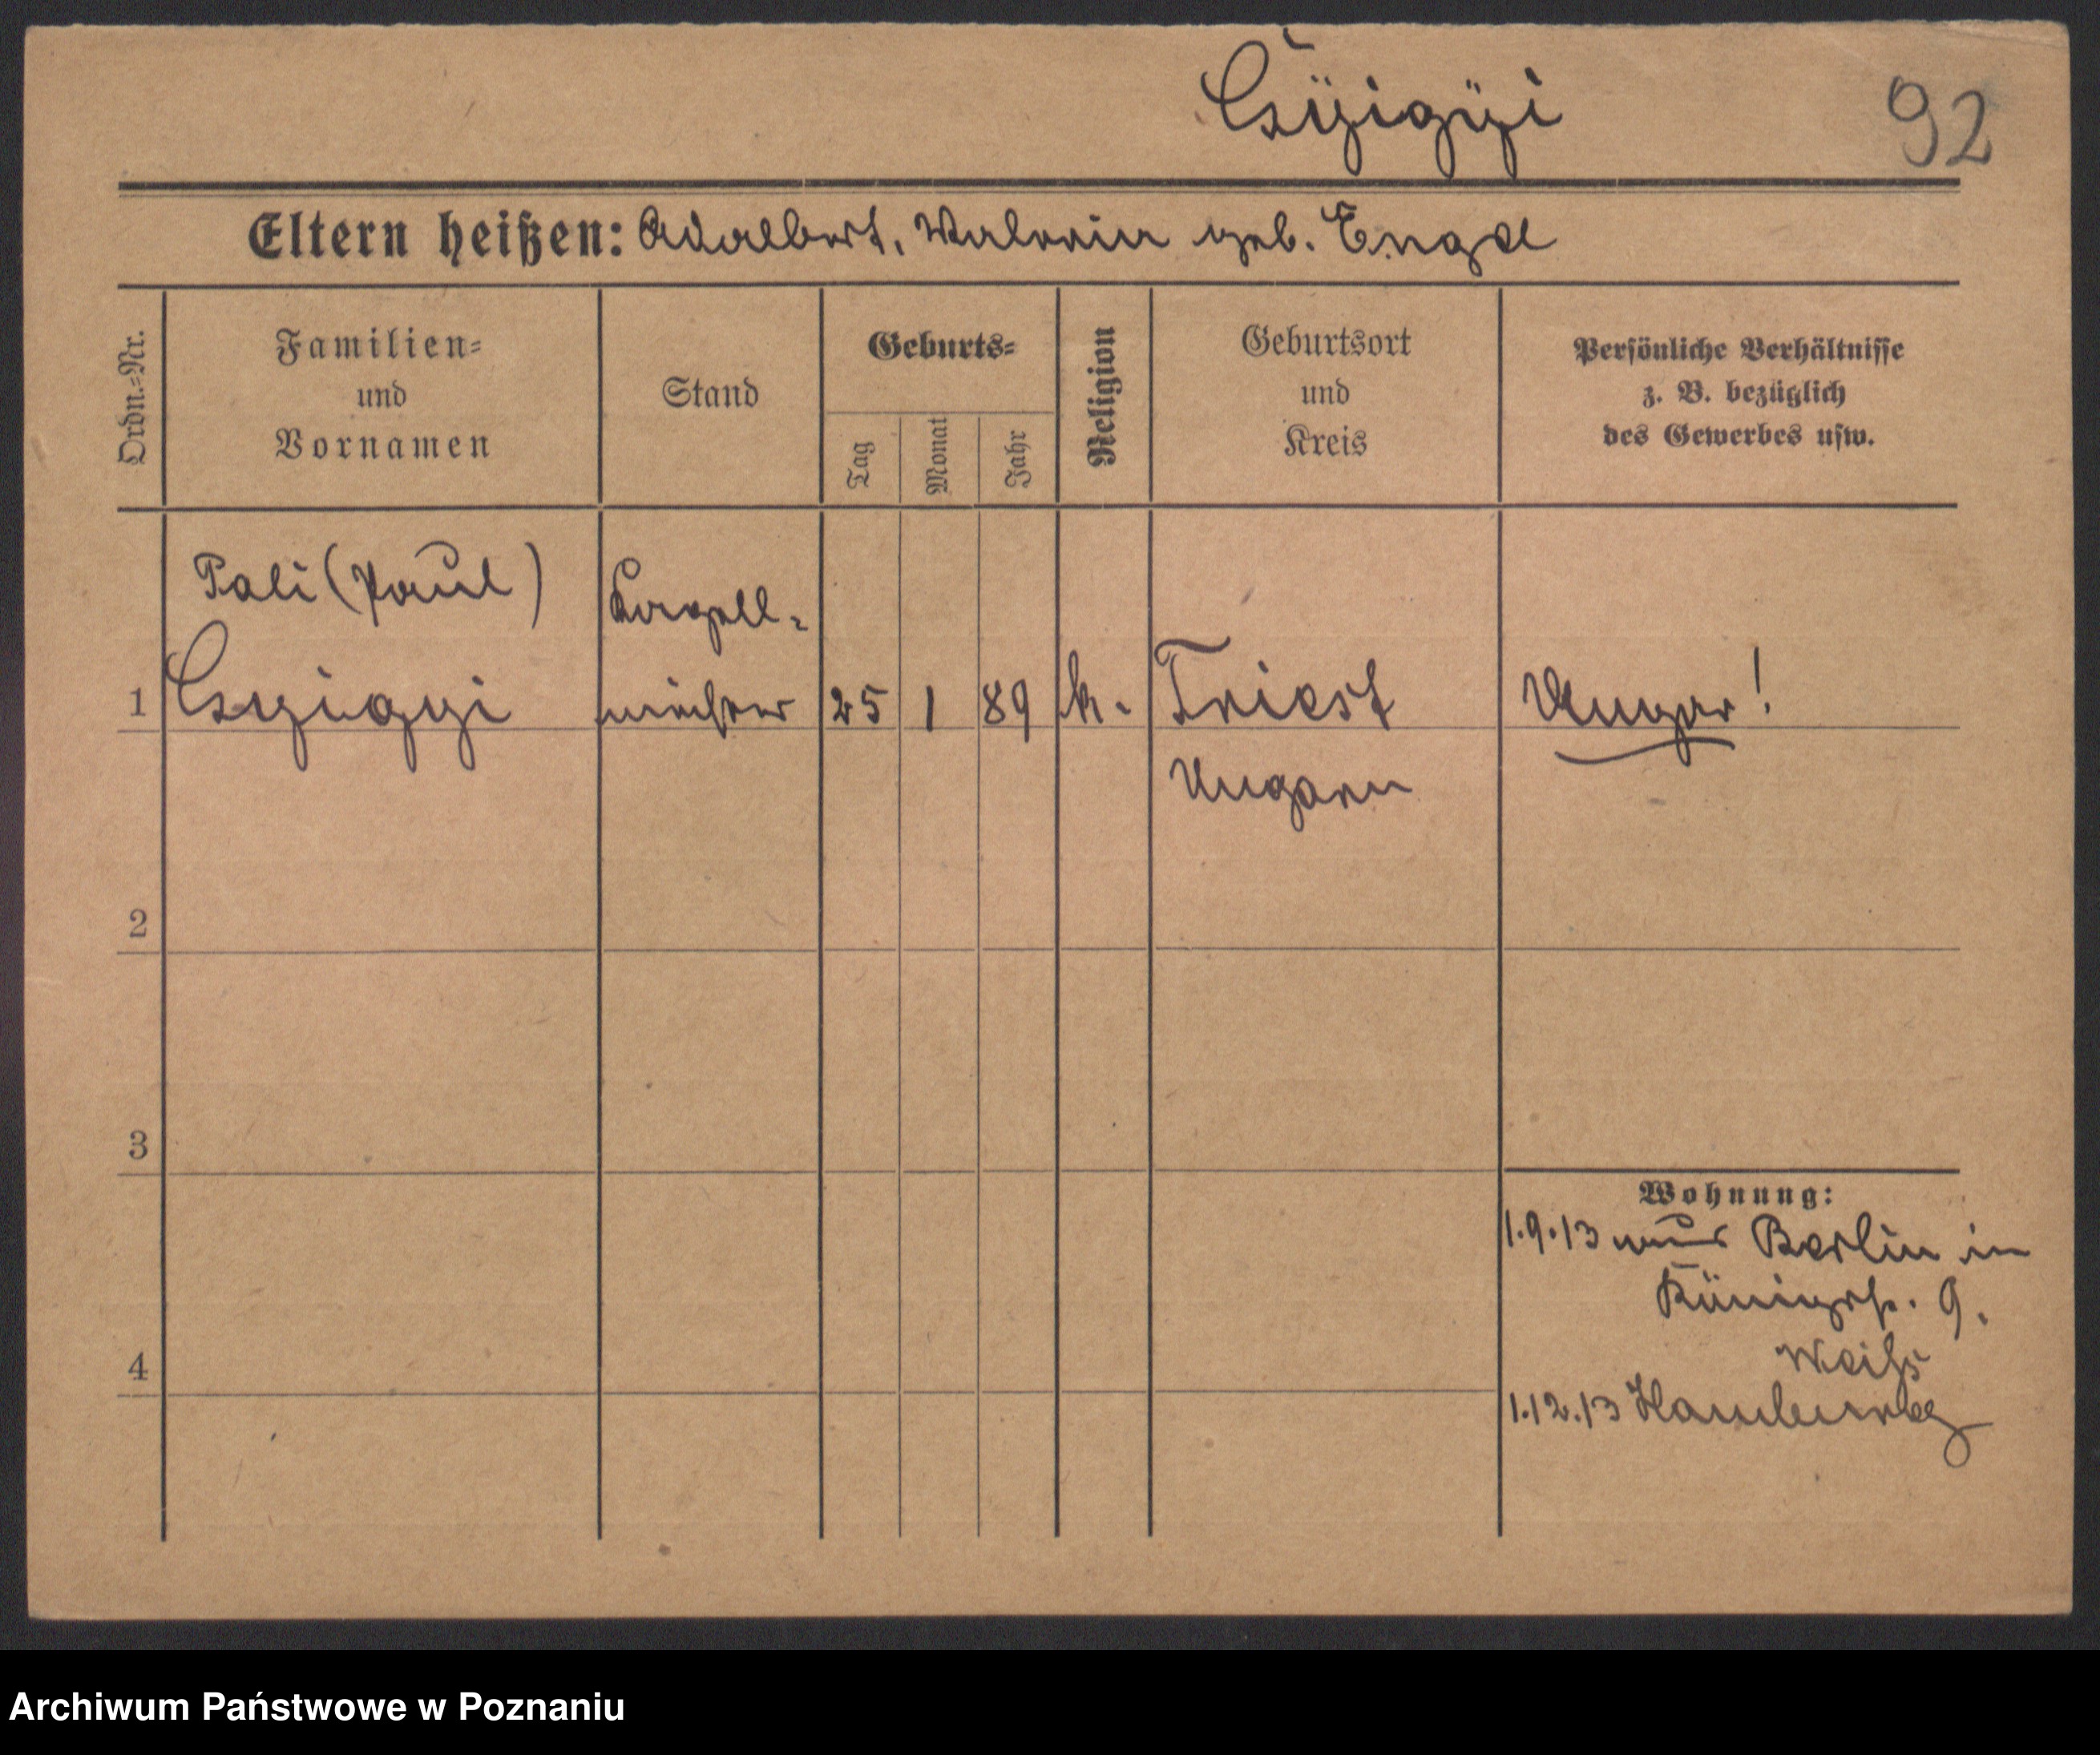 Csÿigÿi
92
Eltern heißen: Adalbert, Valeria geb. Engel
Ordn.-Nr.
Familien-
und
Vornamen
Stand
Geburts-
Tag
Monat
Jahr
Religion
Geburtsort
und
Kreis
Persönliche Verhältnisse
z. B. bezüglich
des Gewerbes usw.
Pali (Paul)
Kapell-
1 Csyigyi meister 25 1 89 k. Triest Ungar!
Ungarn
2
3
Wohnung:
1.9.13 aus Berlin in
9.
Weiß
4
1.12.13 Hamburg
Archiwum Państwowe w Poznaniu